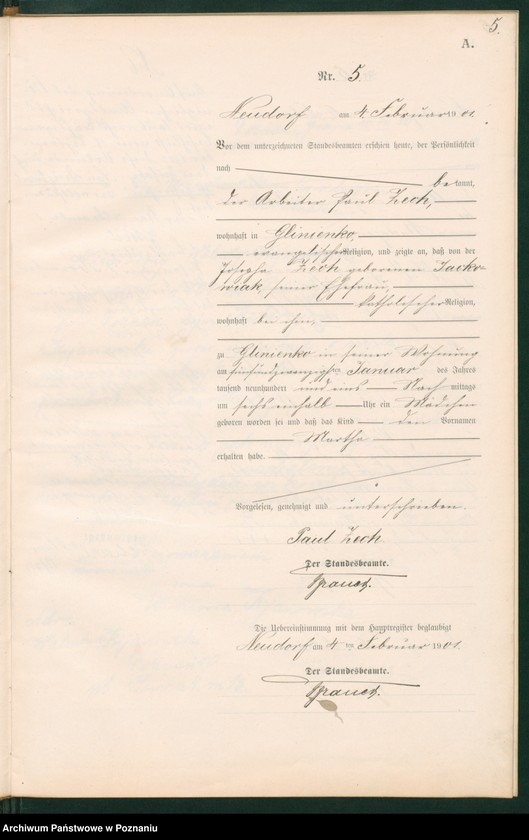 5.
A.
Nr. 5.
Neudorf am 4. Februar 1901.
Vor dem unterzeichneten Standesbeamten erschien heute, der Persönlichkeit
nach
bekannt,
der Arbeiter Paul Zech,
wohnhaft in Glinienko,
evangelischer Religion, und zeigte an, daß von der
Josepha Zech geborenen Jackowiak, seiner Ehefrau,
katholischer Religion,
wohnhaft bei ihm,
zu Glinienko in seiner Wohnung
am fünfundzwanzigsten Januar des Jahres
tausend neunhundert und eins Nachmittags
um sechs einhalb Uhr ein Mädchen
geboren worden sei und daß das Kind den Vornamen
Martha
erhalten habe.
Vorgelesen, genehmigt und unterschrieben.
Paul Zech
Der Standesbeamte.
Die Uebereinstimmung mit dem Hauptregister beglaubigt
Neudorf am 4 ten Februar 1901.
Der Standesbeamte.
Archiwum Państwowe w Poznaniu